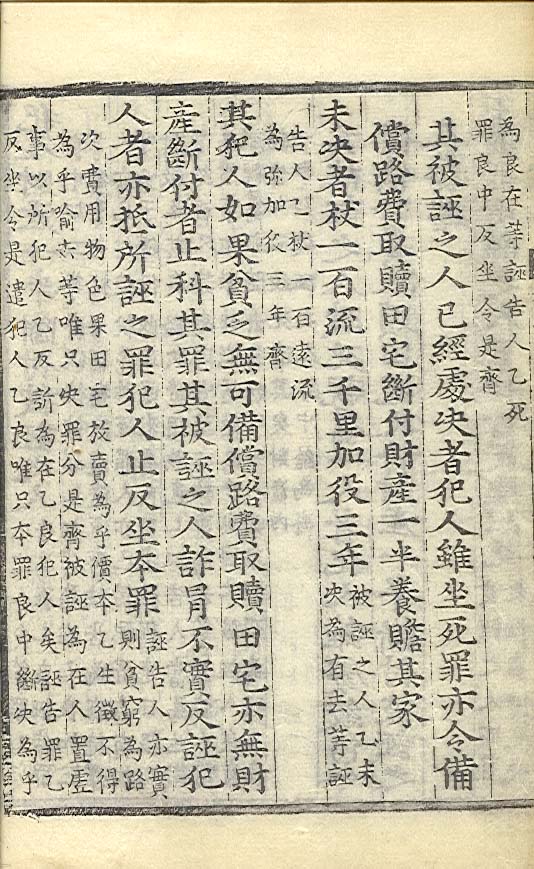 為良在等誣告人乙死
罪良中反坐令是齊
其被誣之人已經處决者犯人雖坐死罪亦令備
償路費取贖田宅斷付財産一半養贍其家
未决者杖一百流三千里加役三年
被誣之人乙未
决為有去等誣
告人乙杖一百遠流
為弥加役三年齊
其犯人如果貧乏無可備償路費取贖田宅亦無財
産斷付者止科其罪其被誣之人詐冒不實反誣犯
人者亦抵所誣之罪犯人止反坐夲罪
誣告人亦實
則貧窮為路
次費用物色果田宅放賣為乎價夲乙生徵不得
為乎喻去等唯只决罪分是齊被誣為在人置虛
事以所犯人乙反訴為在乙良犯人矣誣告罪乙
反坐令是遣犯人乙良唯只夲罪良中斷决為乎